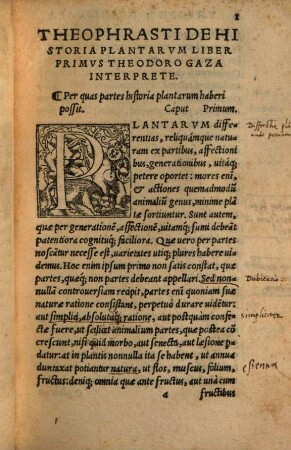 1
THEOPHRASTI DE HI
STORIA PLANTARVM LIBER
PRIMVS THEODORO GAZA
INTERPRETE.
¶ Per quas partes historia plantarum haberi
possit. Caput Primum.
PLANTARVM diffe
rentias, reliquamque natu
ram ex partibus, affectioni
bus, generationibus, uitaq;
petere oportet: mores enĩ
& actiones quemadmodũ
animaliũ genus, minime plã
tæ sortiuntur. Sunt autem,
quæ per generationẽ, affectionẽ, uitamq; sumi debeãt
patentiora cognituq; faciliora. Quæ uero per partes
noscatur necesse est, uarietates utiq; plures habere ui
demus. Hoc enim ipsum primo non satis constat, quæ
partes, quæq; non partes debeant appellari. Sed nõ no
nullã controuersiam recipit. Partes enĩ quoniam suæ
naturæ ratione consistant, perpetuo durare uidẽtur:
aut simplici, absolutaq; ratione, aut postquàm confe
ctæ fuere, ut scilicet animalium partes, quæ postea cõ
crescunt, nisi quid morbo, aut senectu, aut læsione pe
datur: at in plantis nonnulla ita se habent, ut annua
duntaxat potiantur natura, ut flos, muscus, folium,
fructus: deniq; omnia quæ ante fructus, aut una cum
a fructibus
simpliciter